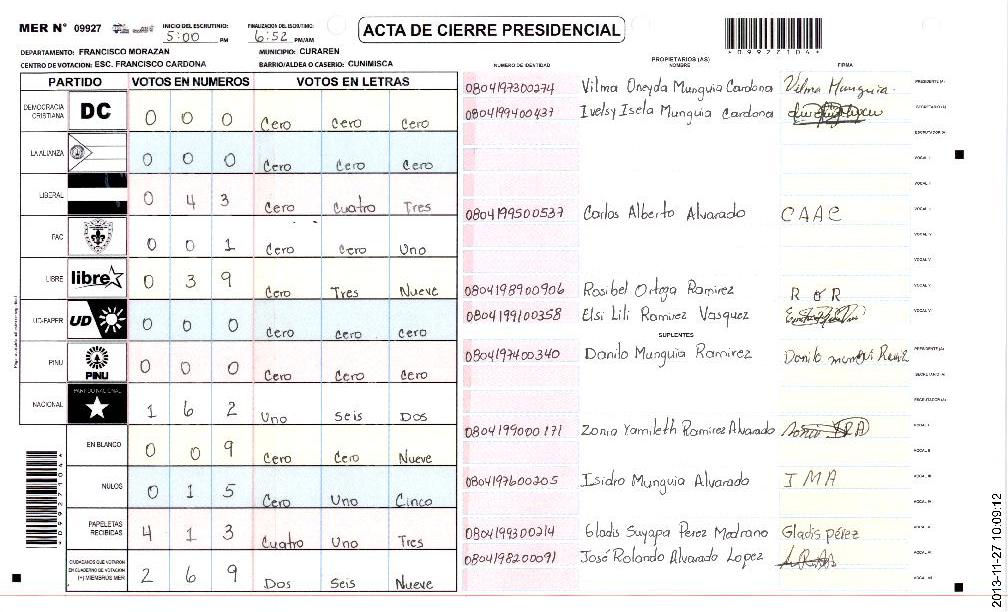 MER N° 09927
INICIO DEL ESCRUTINIO:
5:00 PM
FINALIZACION DEL ESCRUTINIO:
6:52 PM/AM
ACTA DE CIERRE PRESIDENCIAL
DEPARTAMENTO: FRANCISCO MORAZAN
MUNICIPIO: CURAREN
CENTRO DE VOTACION: ESC. FRANCISCO CARDONA
BARRIO/ALDEA O CASERIO: CUNIMISCA
PARTIDO VOTOS EN NUMEROS VOTOS EN LETRAS
DEMOCRACIA CRISTIANA DC 0 0 0 Cero Cero Cero
LA ALIANZA 0 0 0 Cero Cero Cero
LIBERAL 0 4 3 Cero Cuatro Tres
PAC 0 0 1 Cero Cero Uno
LIBRE libre 0 3 9 Cero Tres Nueve
UD-FAPER UD 0 0 0 Cero Cero Cero
PINU PINU 0 0 0 Cero Cero Cero
NACIONAL PARTIDO NACIONAL 1 6 2 Uno Seis Dos
EN BLANCO 0 0 9 Cero Cero Nueve
NULOS 0 1 5 Cero Uno Cinco
PAPELETAS RECIBIDAS 4 1 3 Cuatro Uno Tres
CIUDADANOS QUE VOTARON EN CUADERNO DE VOTACION (+) MIEMBROS MER 2 6 9 Dos Seis Nueve
PROPIETARIOS (AS)
NUMERO DE IDENTIDAD NOMBRE FIRMA
0804197300274 Vilma Oneyda Munguia Cardona Vilma Munguia. PRESIDENTE (A)
0804199400437 Ivelsy Isela Munguia Cardona SECRETARIO (A)
ESCRUTADOR (A)
VOCAL I
VOCAL II
0804199500537 Carlos Alberto Alvarado CAAC VOCAL III
VOCAL IV
VOCAL V
0804198900906 Rosibel Ortega Ramirez R O R VOCAL V
0804199100358 Elsi Lili Ramirez Vasquez VOCAL VI
SUPLENTES
0804197400340 Danilo Munguia Ramirez Danilo PRESIDENTE (A)
SECRETARIO (A)
ESCRUTADOR (A)
0804199000171 Zonia Yamileth Ramirez Alvarado VOCAL I
VOCAL II
0804197600205 Isidro Munguia Alvarado IMA VOCAL III
VOCAL IV
0804199300214 Gladis Suyapa Perez Madrano Gladis pérez VOCAL V
0804198200091 José Rolando Alvarado Lopez VOCAL VI
VOCAL VII
099271041
2013-11-27 10:09:12